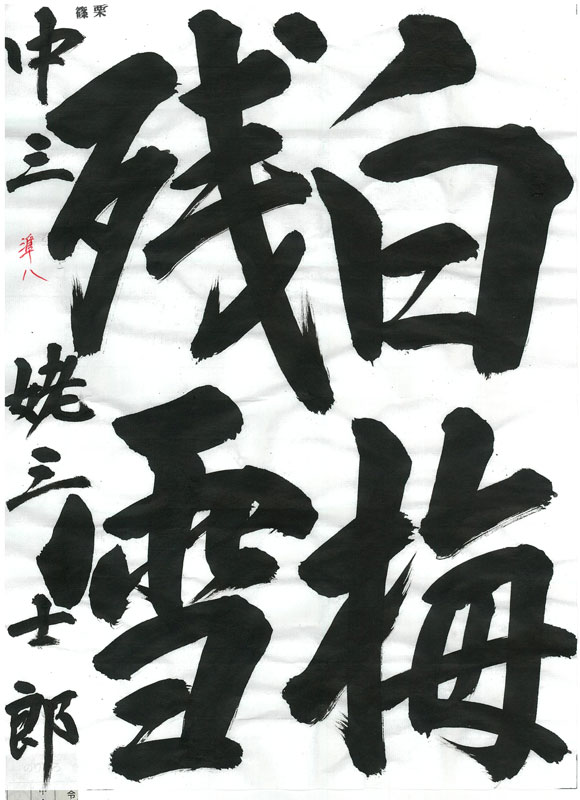 白梅
残雪
篠栗
中三 姥三士郎
準八